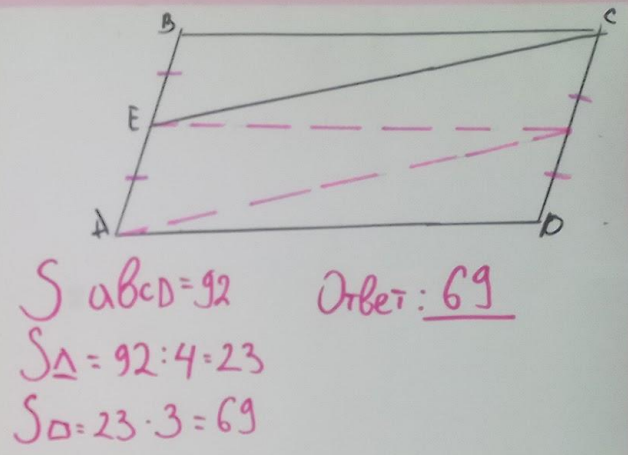 B C
E
A D
S aBCD = 92
Ответ: 69
S△ = 92 : 4 = 23
S▱ = 23 · 3 = 69